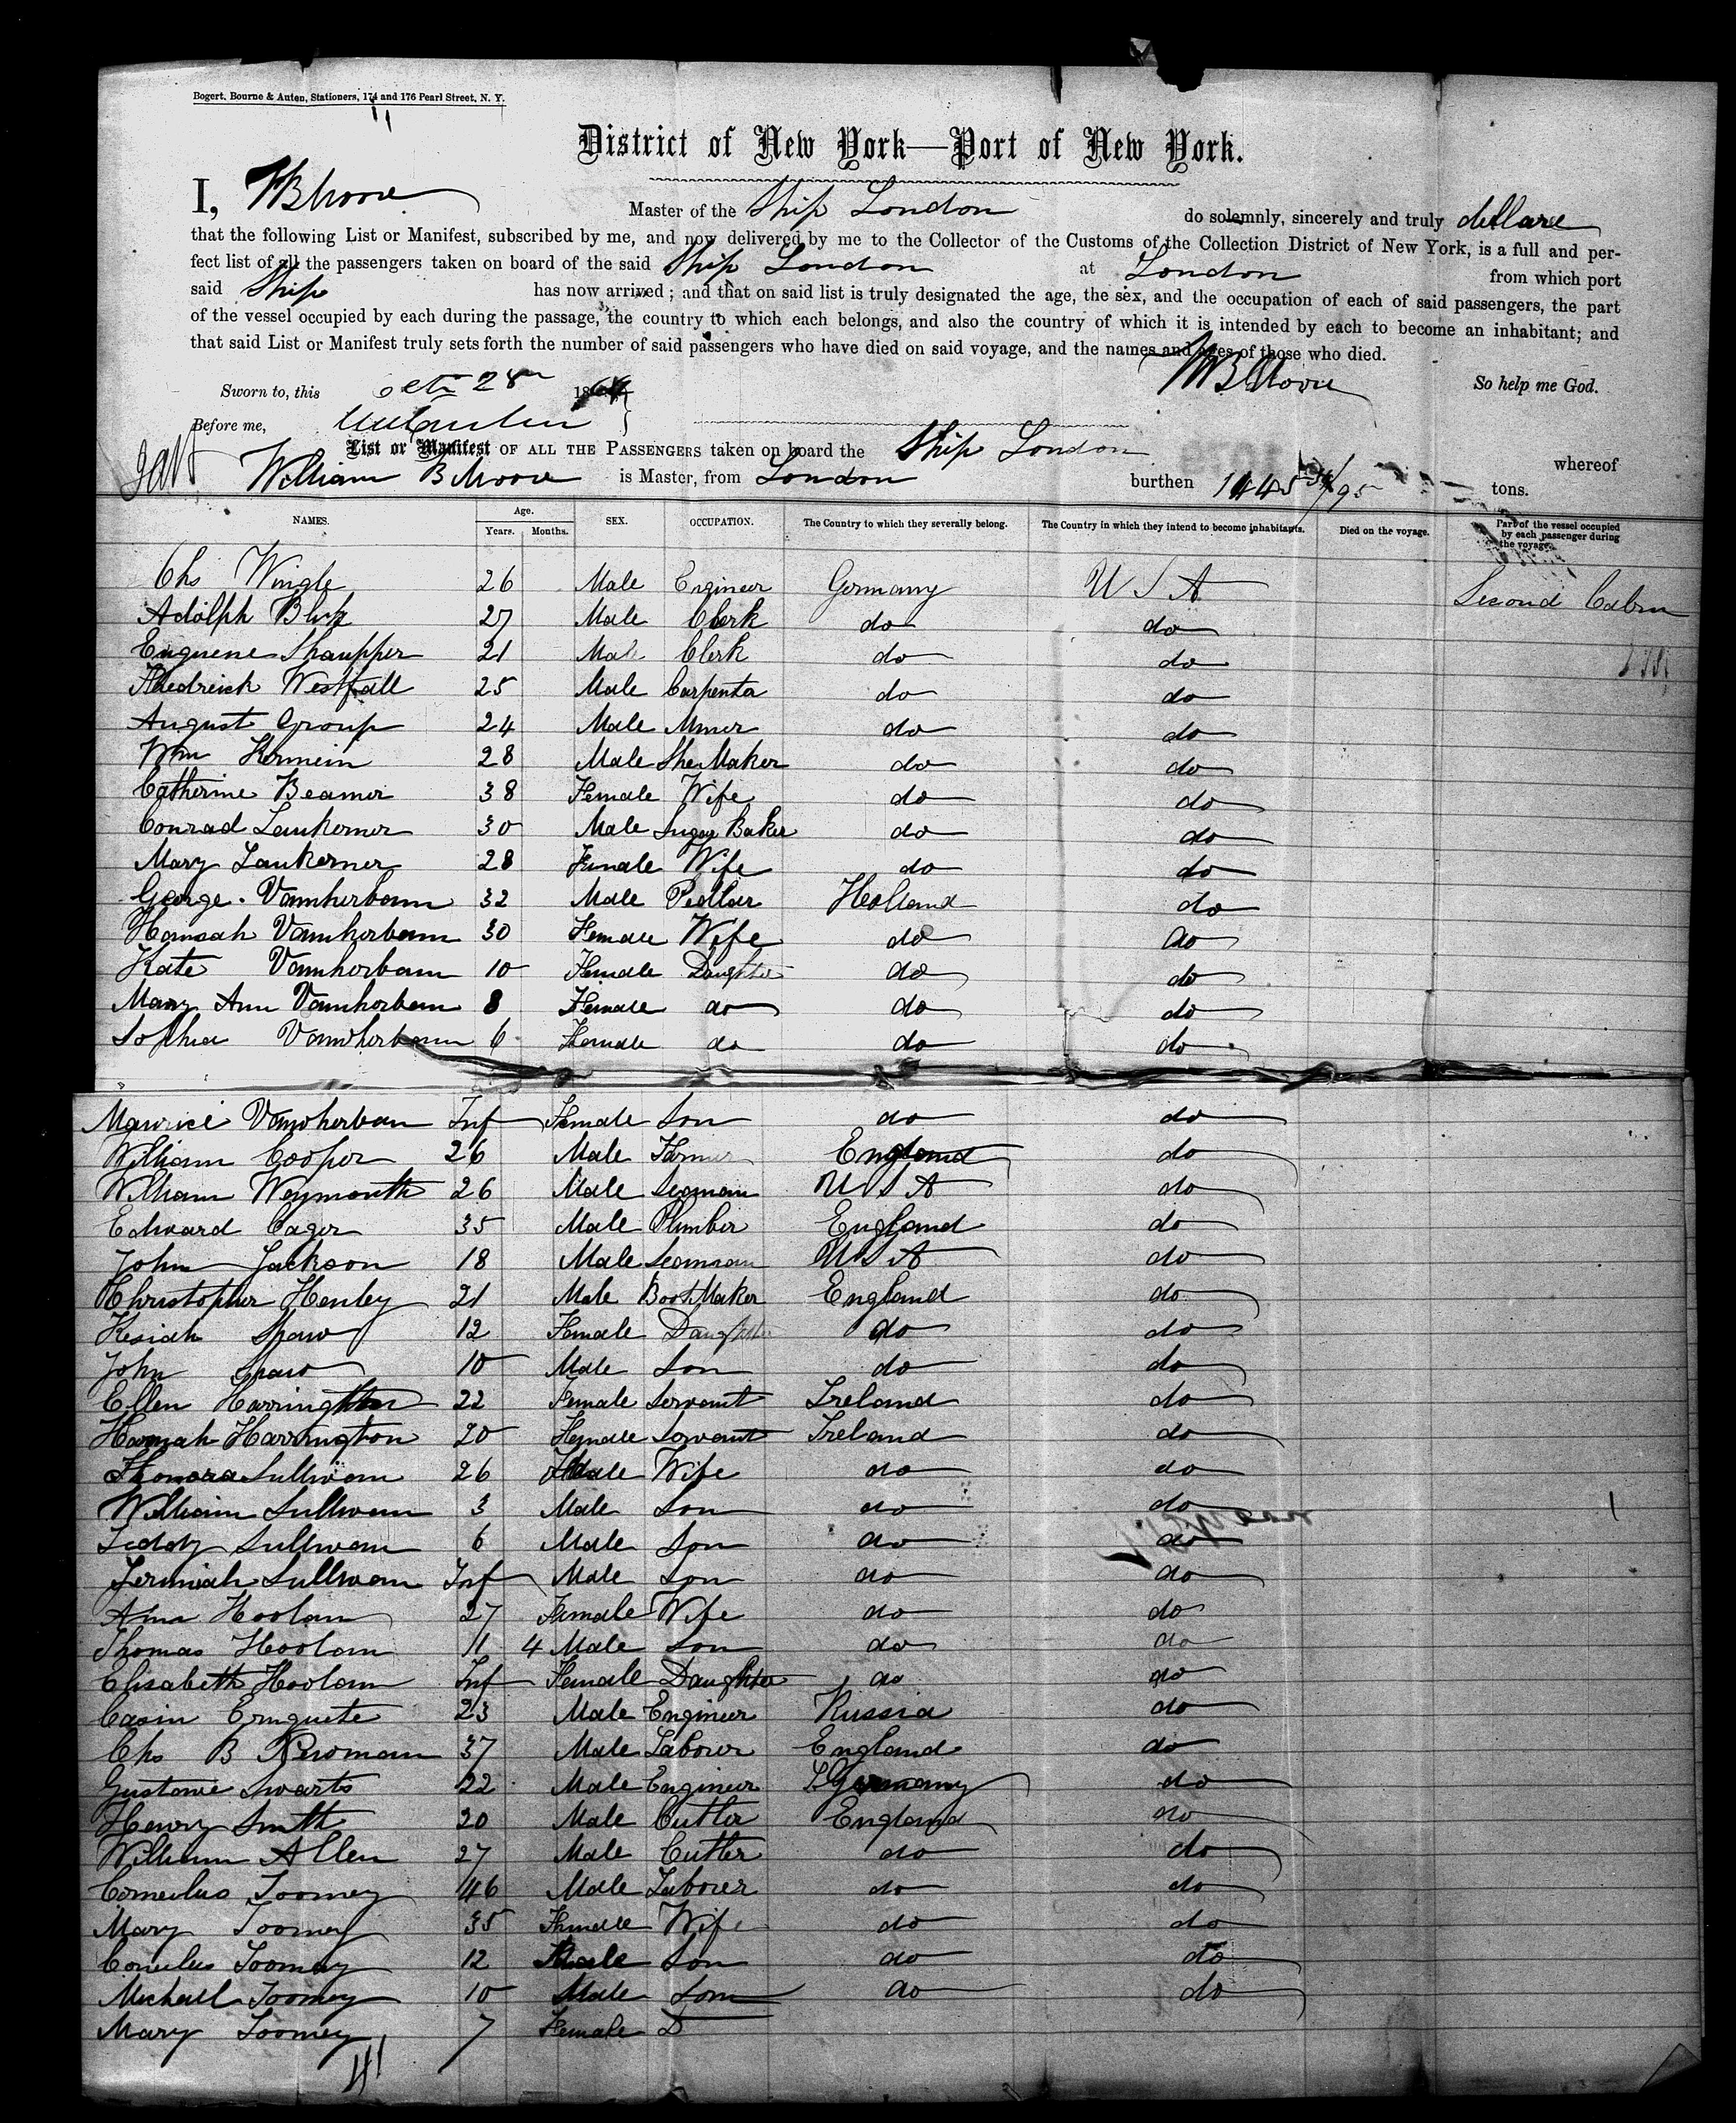 Bogert, Bourne & Auten, Stationers, 174 and 176 Pearl Street, N. Y.
District of New York—Port of New York.
I, WB Moore Master of the Ship London do solemnly, sincerely and truly declare
that the following List or Manifest, subscribed by me, and now delivered by me to the Collector of the Customs of the Collection District of New York, is a full and per-
fect list of all the passengers taken on board of the said Ship London at London from which port
said Ship has now arrived; and that on said list is truly designated the age, the sex, and the occupation of each of said passengers, the part
of the vessel occupied by each during the passage, the country to which each belongs, and also the country of which it is intended by each to become an inhabitant; and
that said List or Manifest truly sets forth the number of said passengers who have died on said voyage, and the names and ages of those who died.
WB Moore So help me God.
Sworn to, this Oct 28 18
Before me,
List or Manifest OF ALL THE PASSENGERS taken on board the Ship London whereof
William B Moore is Master, from London burthen 1145 /95 tons.
NAMES. Age. Years. Months. SEX. OCCUPATION. The Country to which they severally belong. The Country in which they intend to become inhabitants. Died on the voyage. Part of the vessel occupied by each passenger during the voyage.
Chs Wingle 26 Male Engineer Germany U S A Second Cabin
Adolph 27 Male Clerk do do
Euguene Shaupper 21 Male Clerk do do
Fredreick Westfall 25 Male Carpenter do do
August Group 24 Male Miner do do
Wm Kermein 28 Male Shoe Maker do do
Catherine Beamer 38 Female Wife do do
Conrad Laukemer 30 Male Sugar Baker do do
Mary Laukemer 28 Female Wife do do
George Vannherbann 32 Male Pedlar Holland do
Hannah Vannherbann 30 Female Wife do do
Kate Vannhorbam 10 Female Daughter do do
Mary Ann Vannhorbam 8 Female do do do
Sophia Vannherbam 6 Female do do do
Maurice Vannherban Inf Female Son do do
William Cooper 26 Male Farmer England do
William Weymouth 26 Male Seaman U S A do
Edward Cager 35 Male Plumber England do
John Jackson 18 Male Seaman U S A do
Christopher Henley 21 Male Boot Maker England do
Kesiah Shaw 12 Female Daughter do do
John Shaw 10 Male Son do do
Ellen Harrington 22 Female Servant Ireland do
Hannah Harrington 20 Female Servant Ireland do
Honora Sullivan 26 Wife do do
William Sullivan 3 Male Son do do
Teddy Sullivan 6 Male Son do do
Jerimiah Sullivan Inf Male Son do do
Ann Hoolan 27 Female Wife do do
Thomas Hoolan 11 4 Male Son do do
Elisabeth Hoolan Inf Female Daughter do do
Casin Ernguete 23 Male Engineer Russia do
Chs B Newman 37 Male Laborer England do
Gustave Swarts 22 Male Engineer Germany do
Henry Smith 20 Male Cutler England do
William Allen 27 Male Cutler do do
Cornelius Toomey 46 Male Laborer do do
Mary Toomey 35 Female Wife do do
Cornelius Toomey 12 Male Son do do
Michael Toomey 10 Male Son do do
Mary Toomey 7 Female D
41